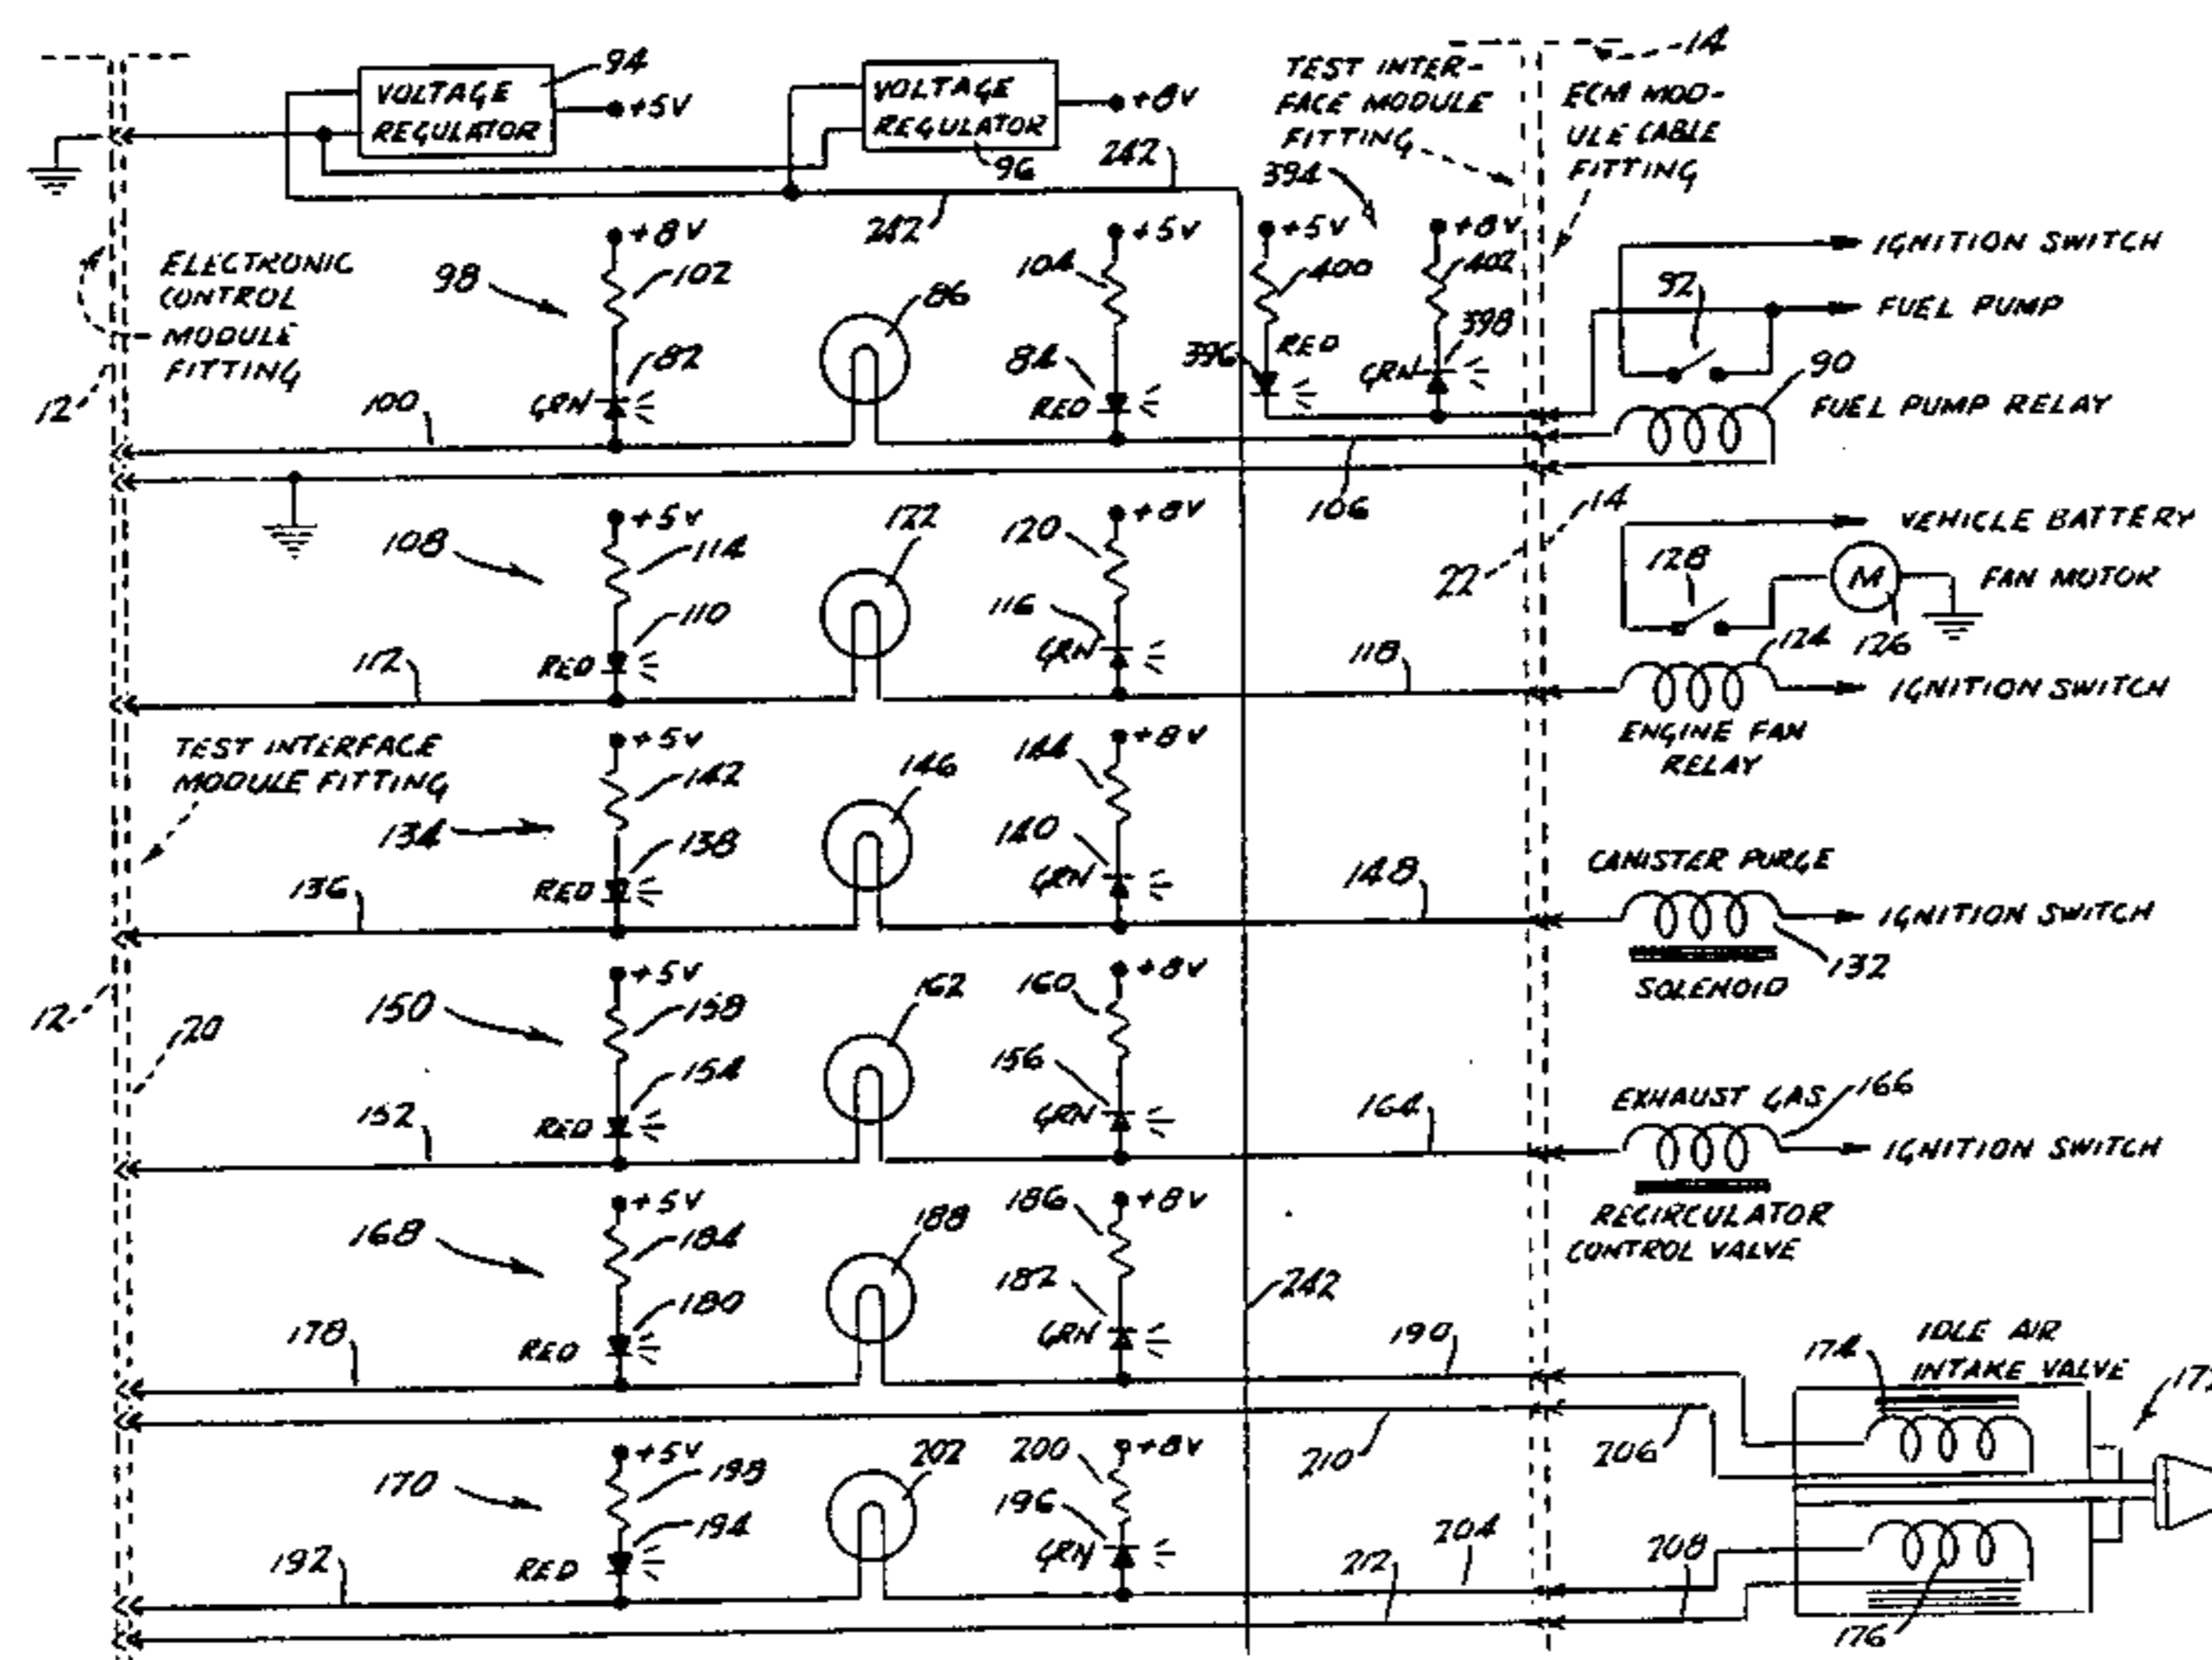 94
VOLTAGE
REGULATOR
+5V
VOLTAGE
REGULATOR
96
+8V
242
242
TEST INTER-
FACE MODULE
FITTING
14
ECM MOD-
ULE CABLE
FITTING
394
ELECTRONIC
CONTROL
MODULE
FITTING
12
98
+8V
102
82
GRN
100
86
+5V
104
84
RED
+5V
400
396
RED
+8V
402
398
GRN
106
IGNITION SWITCH
FUEL PUMP
92
90
FUEL PUMP RELAY
108
+5V
114
110
RED
112
122
+8V
120
116
GRN
118
22
14
VEHICLE BATTERY
128
M
FAN MOTOR
126
124
IGNITION SWITCH
ENGINE FAN
RELAY
TEST INTERFACE
MODULE FITTING
134
+5V
142
138
RED
136
146
+8V
144
140
GRN
148
CANISTER PURGE
IGNITION SWITCH
132
SOLENOID
12
20
150
+5V
158
154
RED
152
162
+8V
160
156
GRN
164
EXHAUST GAS
166
IGNITION SWITCH
RECIRCULATOR
CONTROL VALVE
168
+5V
184
180
RED
178
188
+8V
186
182
GRN
242
190
IDLE AIR
INTAKE VALVE
174
210
206
170
+5V
198
194
RED
192
202
+8V
200
196
GRN
212
204
208
176